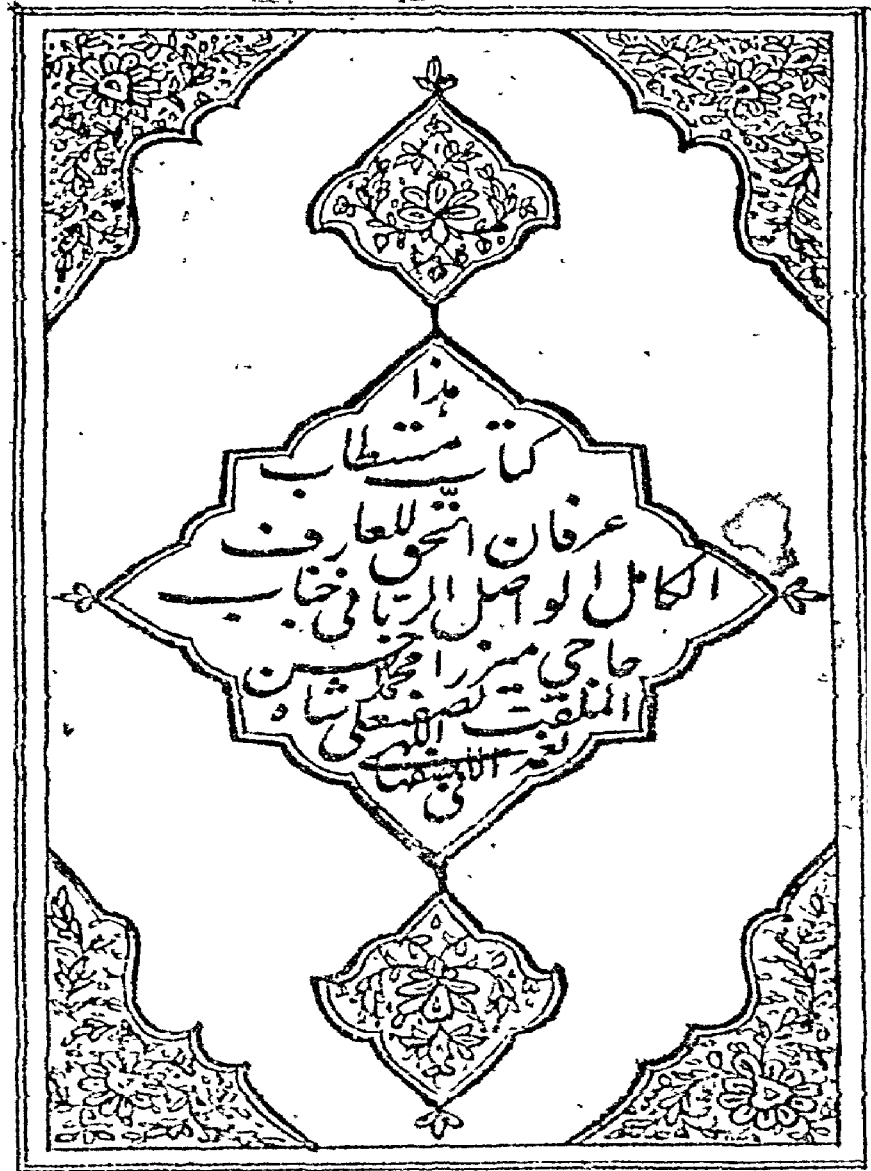 هذا
کتاب مستطاب
عرفان الحق للعارف
الکامل الواصل الربانی جناب
حاجی میرزا محمد حسن
الملقب بصفی علی شاه
نعمة اللهی
الاصفهانی